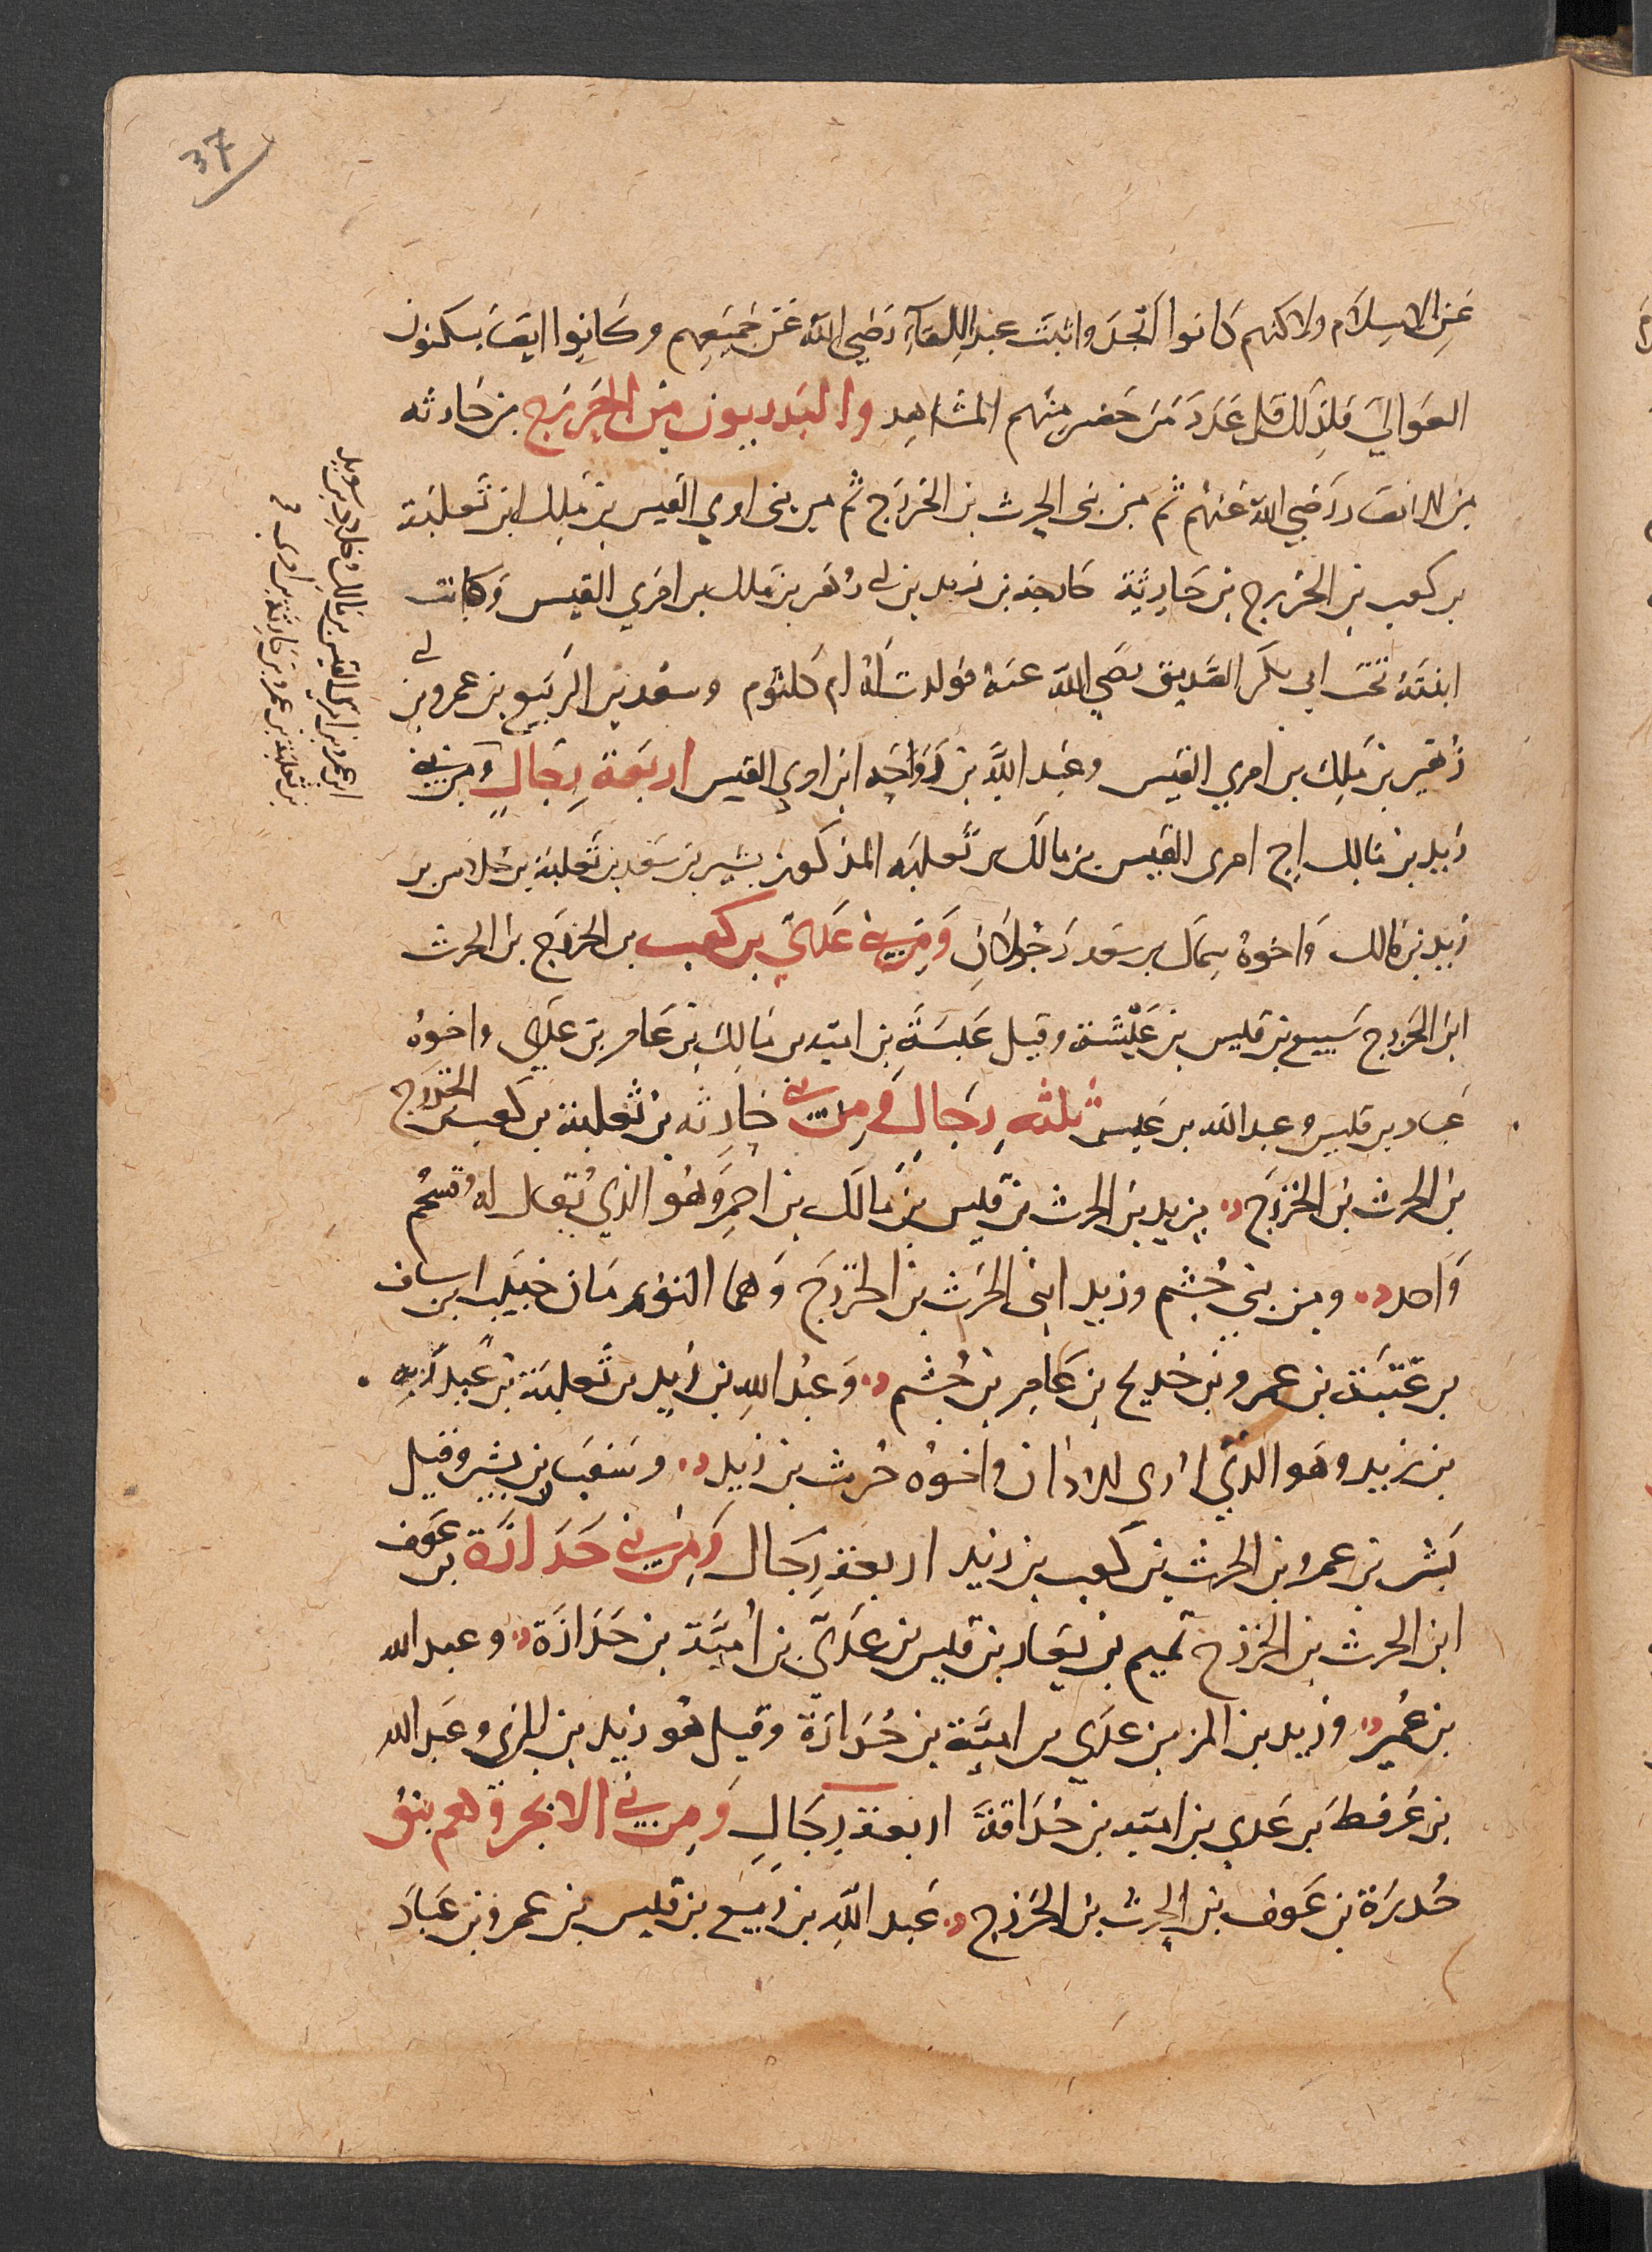 37
عَنِ الاسِلَام ولاكنهم كانوا انجدَ واثبتَ عند اللِقآءِ رَضي اللهُ عَن جَميعِهم وكَانوا ايضا يسكنون
العَوالي فلِذلك قل عَدَد مَن حَضر منهم المشَاهِد والبَدريون مِن الخَزرَج بن حَارثه
من الانصار رَضي الله عَنهُم ثم من بنى الحرث بن الخَزرَج ثم من بنى امرى القيس بن مَلِك ابن ثَعلبَة
بن كعب بن الخزرج بن حَارِثة خارجه بن زيد بن ابى زُهَر بن ملك بن امَرى القيس وَكانت
ابنَتهُ تحتَ ابى بكر الصّديق رضَي الله عنهُ فولدت لهُ ام كلثوُم وسعَد بن الرَبيع بن عمرو بن ابى
زُهَير بن مَلِك بن امرى القيَس وعَبد اللَّه بن رَوَاحَه ابن امرى القيس اربَعة رِجَالٍ وَمن بنى
زَيد بن مَالك اخى امرى القيس بن مالك بن ثَعلبَه المذكور بَشير بن سَعد بن ثَعلبة بن خلاس بن
زَيد بن مَالك وَاخوهُ سِمَاك بن سَعد رَجُلانِ وَمِن بنى عَدىّ بن كَعب بن الخزرَج بن الحرث
ابن الخَزرج سُبيع بن قيس بن عَيْشَة وقيل عَبسَة بن اميّه بن مَالِك بن عَامر بن عَدى واخوهُ
عَباد بن قيس وعبد الله بن عَبس ثلثه رِجَالٍ وَمِن بنى حَارثه بن ثعَلبَة بن كَعب بن الخزرَج
بن الحرث بن الخزرَج يزيد بن الحرث بن قيس بن مَالك بن احمرَ وَهُو الذي يُقال له قسحُم
وَاحد ومِن بنى جُشم وزيد ابنى الحَرث بن الخَزرجَ وَهما التوءمَان خبَيب ابن ساف
بن عّتبَة بن عمرو بن خديج بن عَامر بن جُشم وَعبُد اللهِ بن زَيد بن ثَعلبَة بن عَبد رَبه
بن زيد وهَو الذي ارى للاذان واخوُه حُريث بن زَيد وسَفيَان بن بشر وقيل
بَشر بن عمرو بن الحرث بن كَعب بن زيد اربعة رِجَال وَمِن بنى حَدَارَة بن عَوف
ابن الحرث بن الخزرج تميم بن يعَار بن قيس بن عَدَىّ بن اُميَّة بن حَدَارَة وعبد الله
بن عُمير وزيد بن المزين بن عَدَي بن اميَّة بن حُدَارَة وقيل هُو زيد بن المزى وعَبد الله
بن عُرفطَه بن عَدي بن اميّه بن حُدَارَة اربعة رِجَالٍ وَمِن بَنى الابجر وَهم بنُو
خُدرَة بن عَوف بن الحرث بن الخَزرج عَبد اللَّهِ بن رَبيع بن قيس بن عمرو بن عَبَاد
ابن عمرو بن امرى القيس بن مَالك وخلاد بن سَويد
بن ثعلبَة بن عمرو بن حارِثة بن امرى